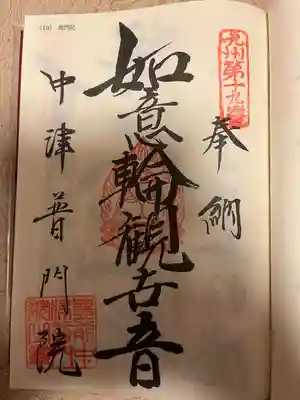 九州第十九番
奉納
如意輪観世音
中津普門院
(19) 普門院